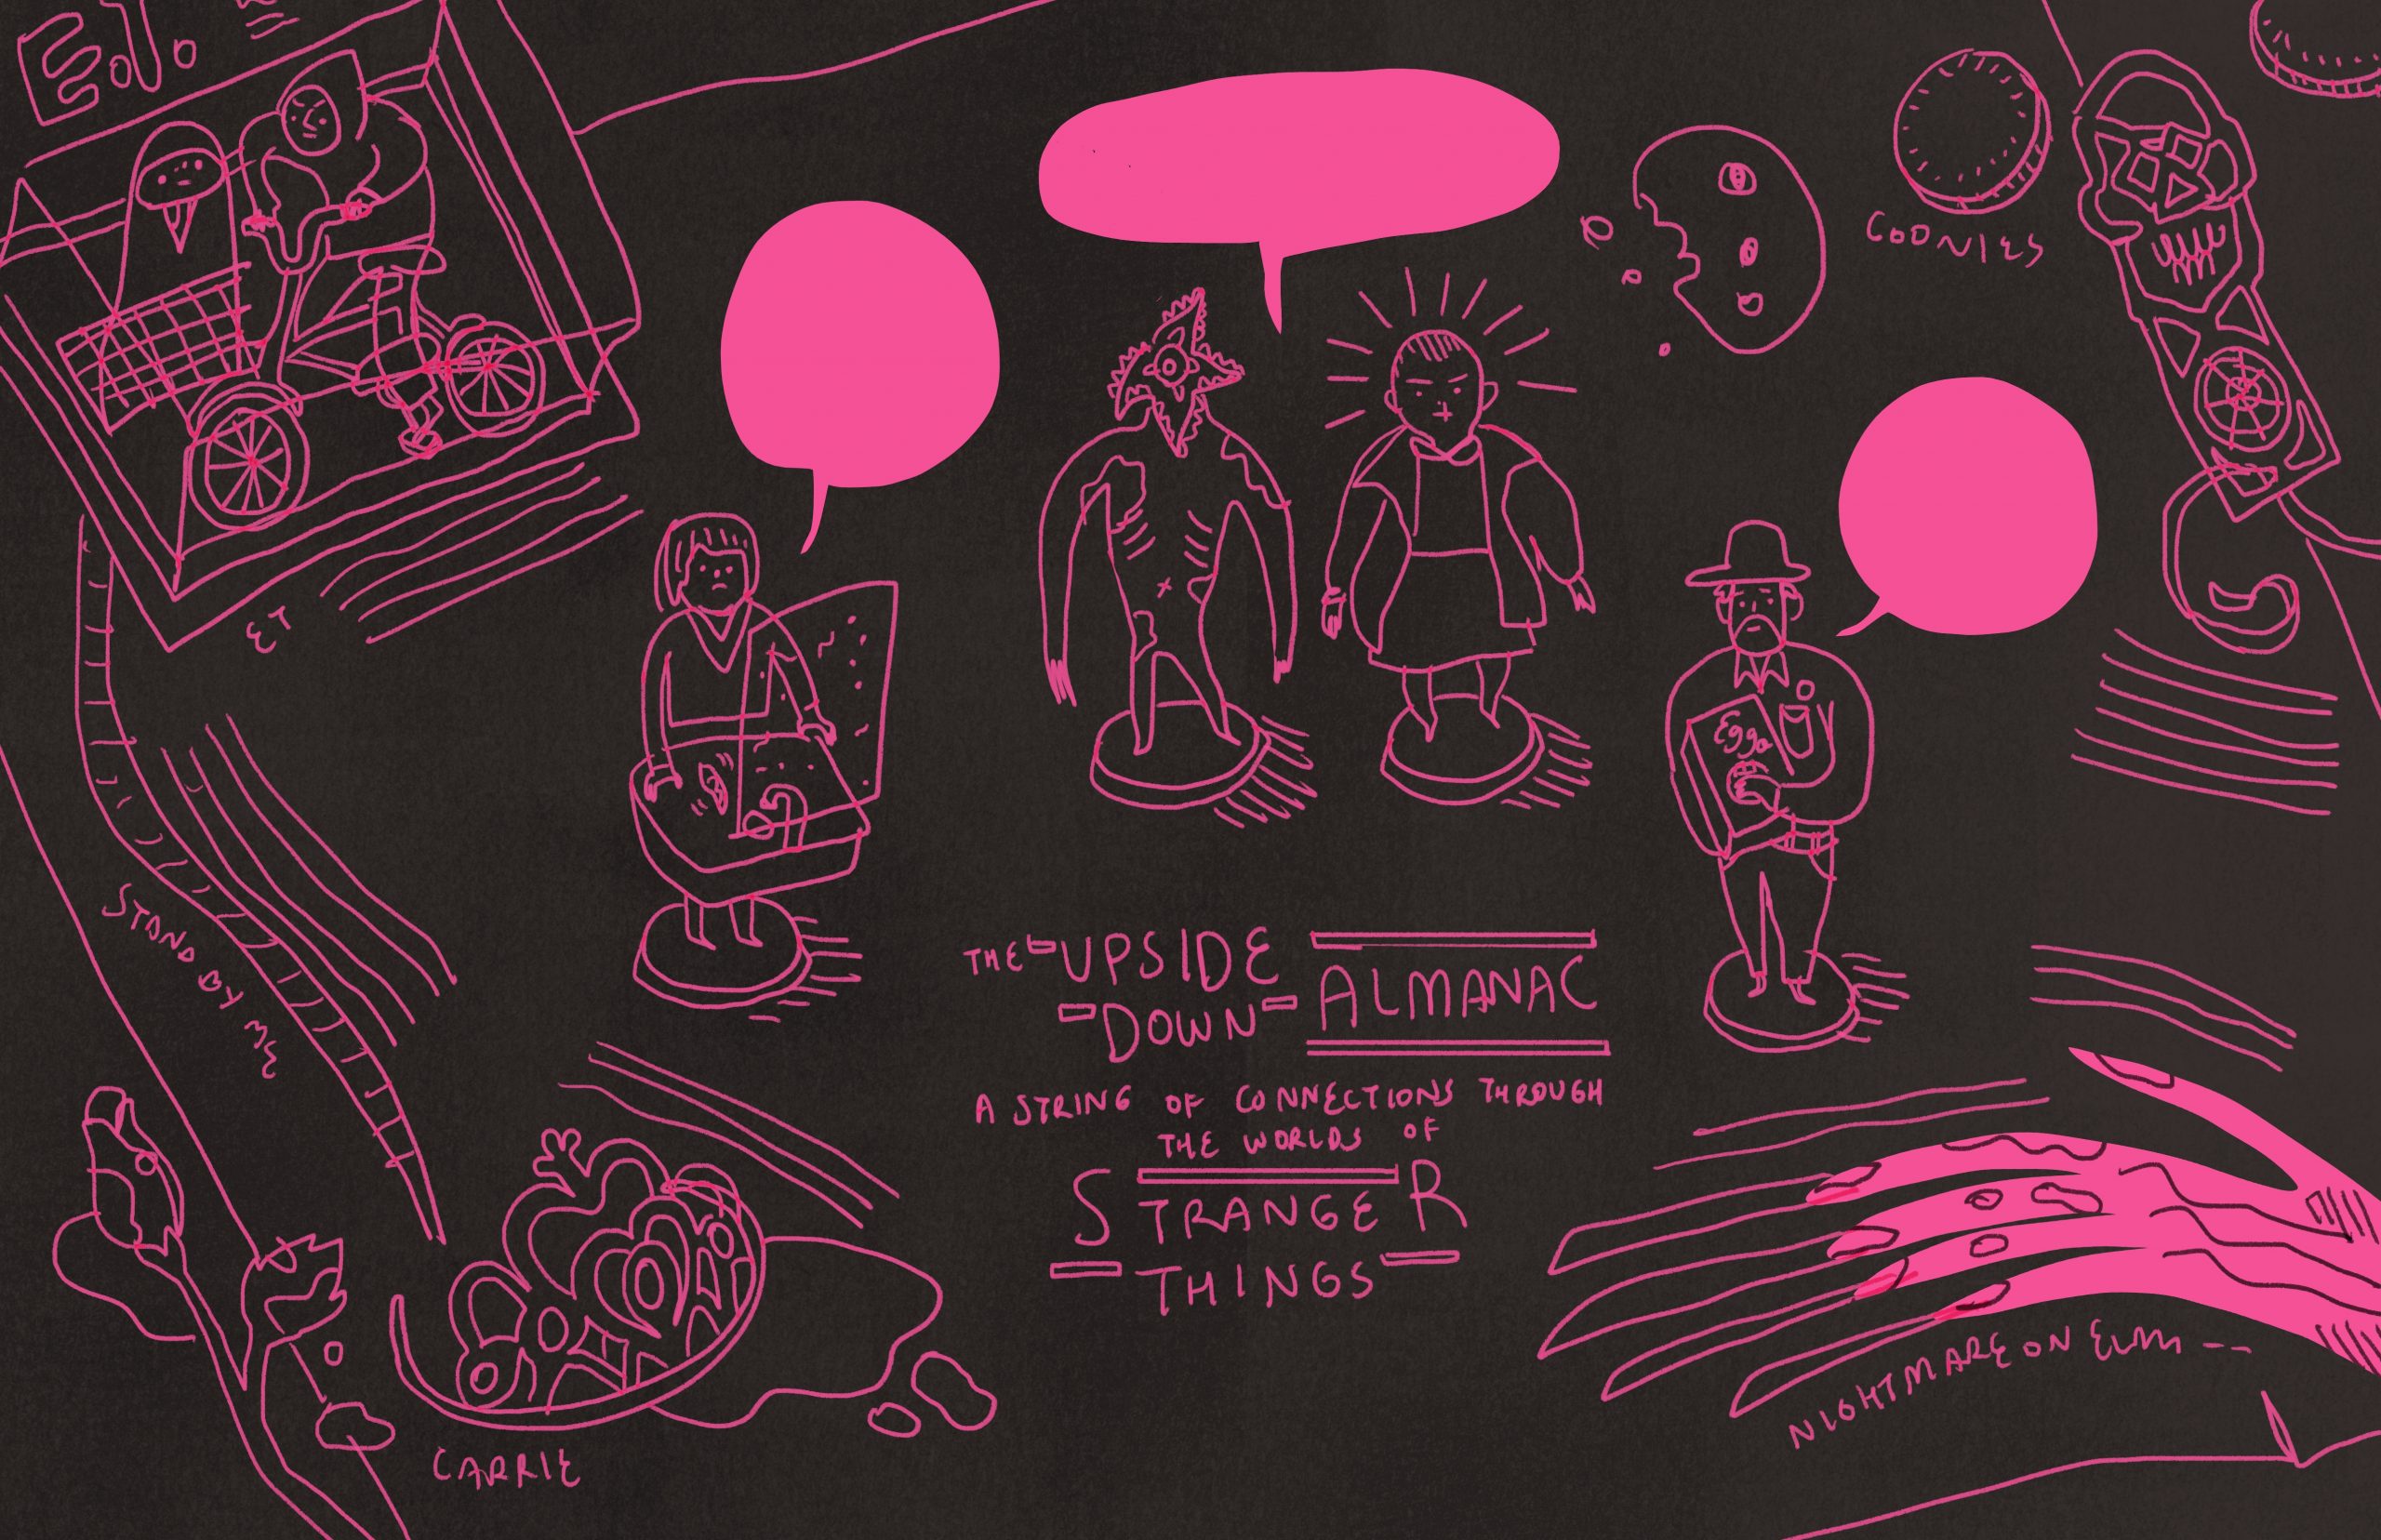 E.T.
GOONIES
ET
Eggo
STAND BY ME
THE UPSIDE
DOWN ALMANAC
A STRING OF CONNECTIONS THROUGH
THE WORLDS OF
STRANGER
THINGS
NIGHTMARE ON ELM --
CARRIE